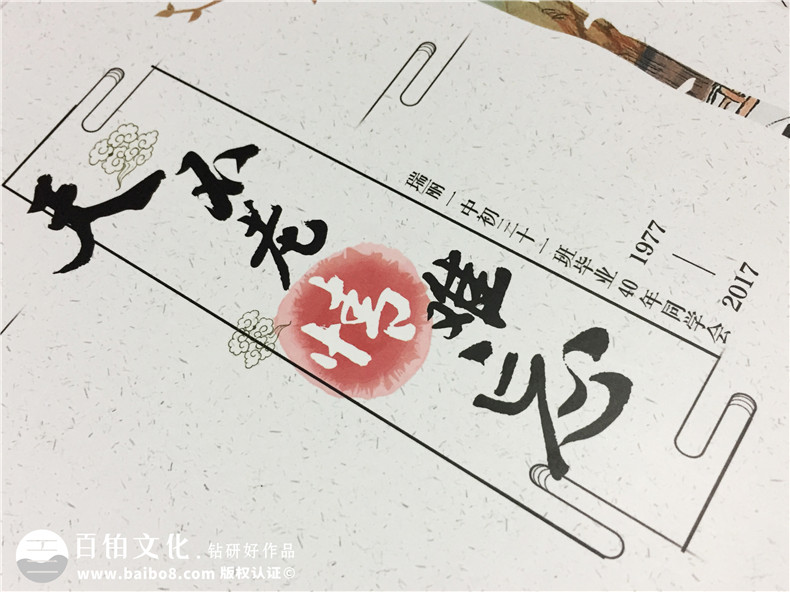 天不老情难忘
瑞丽一中初三十一班毕业40年同学会
1977—2017
百铂文化.钻研好作品
www.baibo8.com 版权认证©